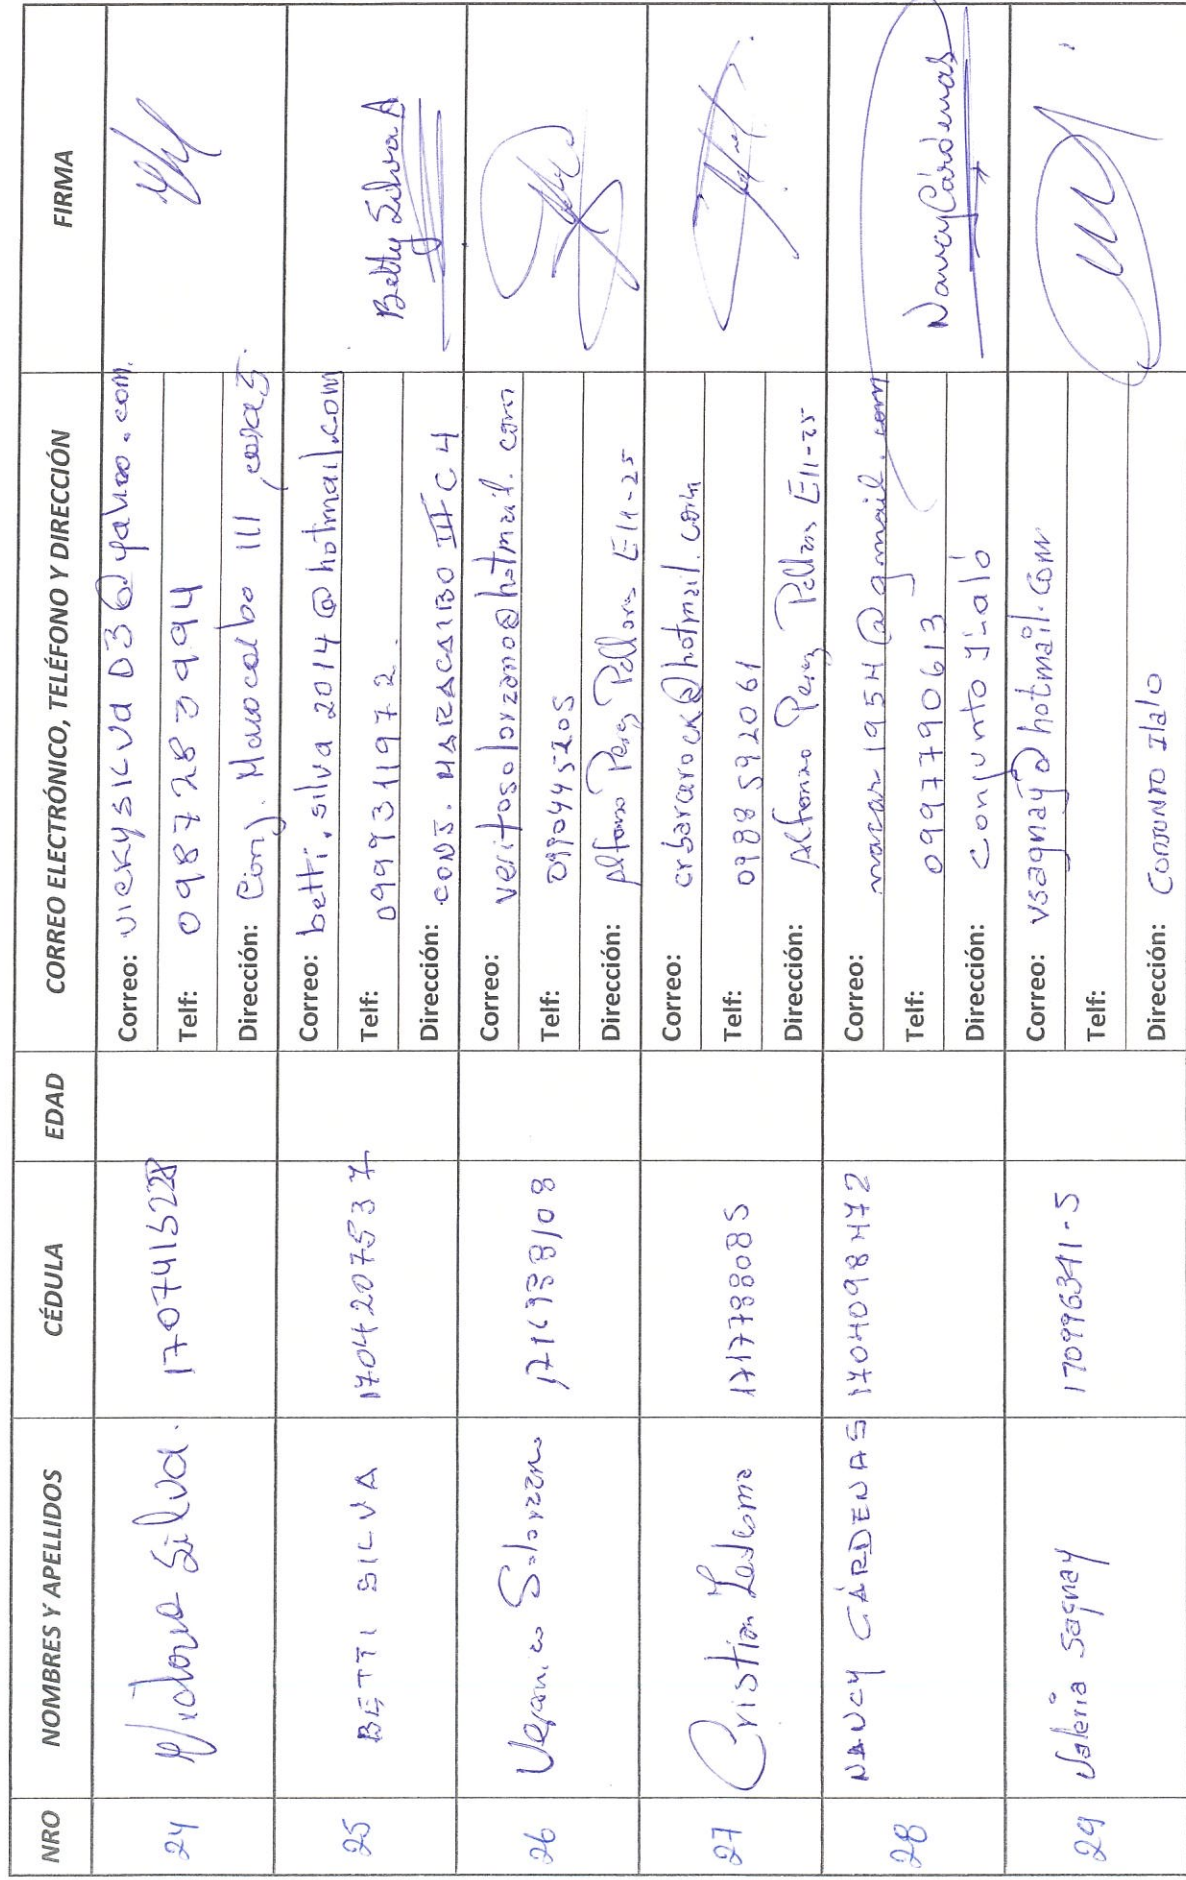 NRO NOMBRES Y APELLIDOS CÉDULA EDAD CORREO ELECTRÓNICO, TELÉFONO Y DIRECCIÓN FIRMA
24 Victoria Silva. 1707415228 Correo: vickysilva036@yahoo.com.
Telf: 0987283994
Dirección: Conj. Maracaibo III, casa 5.
25 BETTI SILVA 1704207537 Correo: betti.silva2014@hotmail.com
Telf: 0999311972.
Dirección: CONJ. MARACAIBO III C4
Betty Silva A
26 Veronica Solorzano Correo: veritosolorzano@hotmail.com
Telf: 0990445205
Dirección: Alfonso Perez Pallares E11-25
27 Cristian Ledesma 1717788085 Correo: crbarcarock@hotmail.com
Telf: 0988592061
Dirección: Alfonso Perez Pallares E11-25
28 NANCY CÁRDENAS 1704098472 Correo: nacar1954@gmail.com
Telf: 0997790613
Dirección: Conjunto Ilaló
Nancy Cárdenas
29 Valeria Sagnay 170996341-5 Correo: vsagnay@hotmail.com
Telf:
Dirección: Conjunto Ilalo